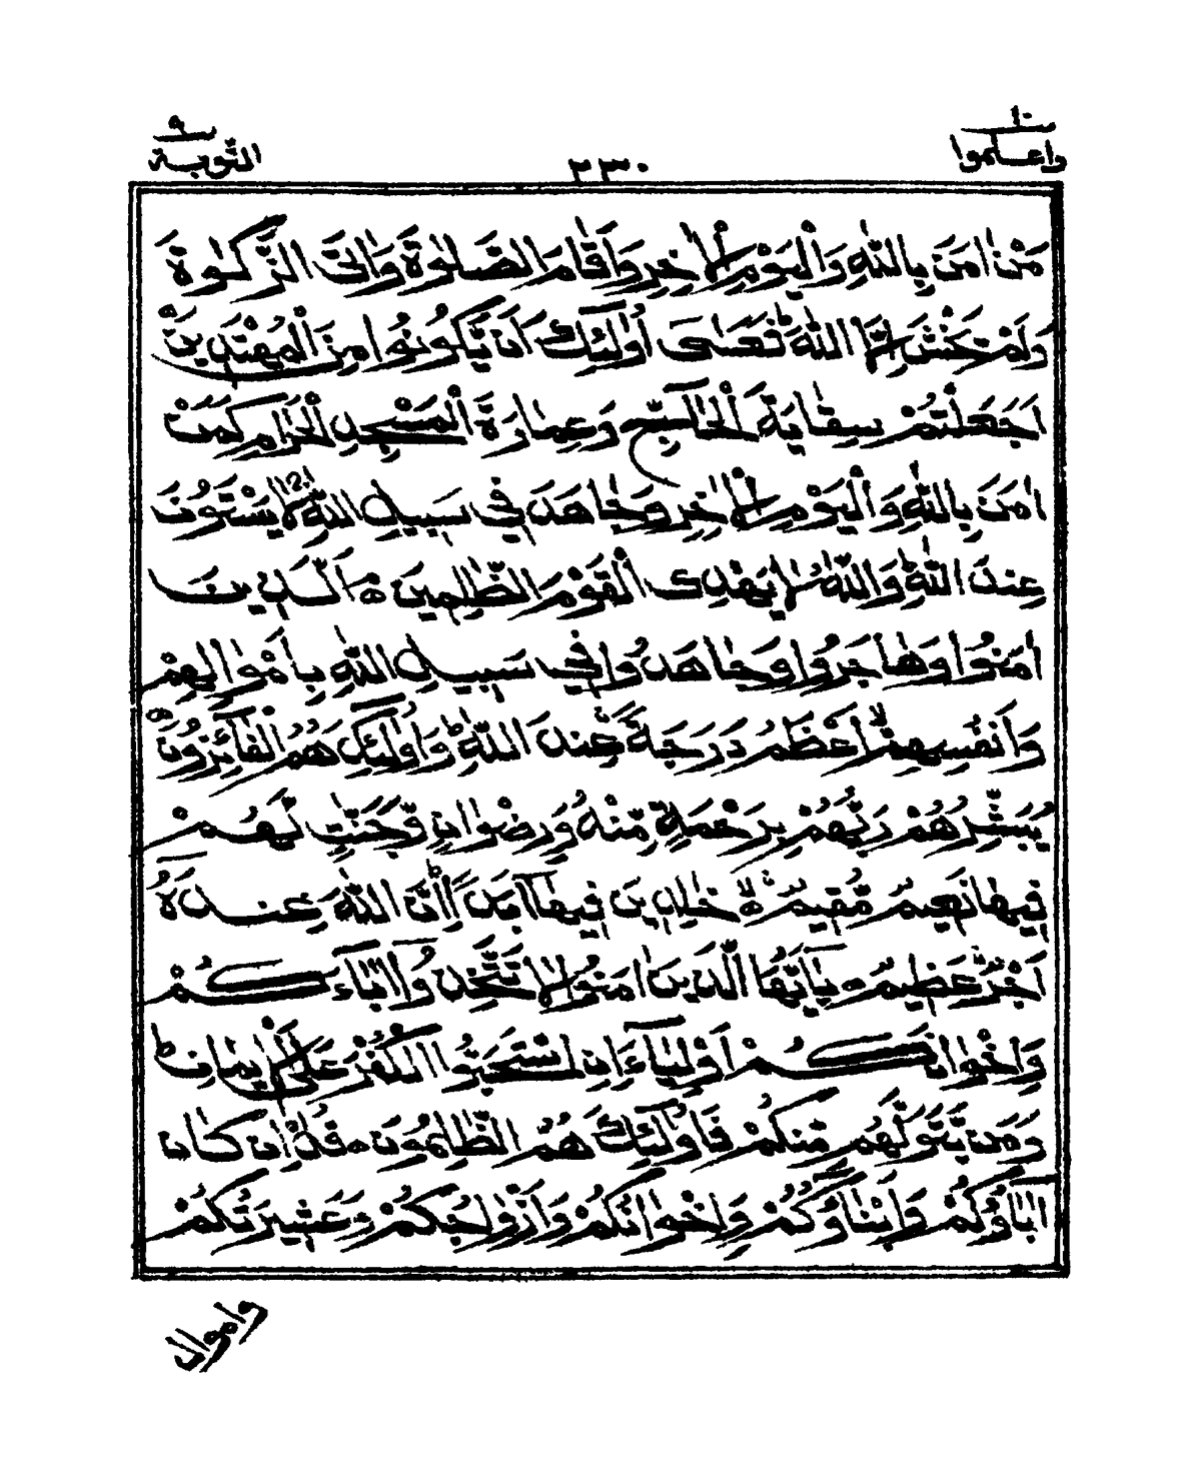 ١٠
واعلموا
٢٣٠
٩
التوبة
مَنْ اٰمَنَ بِاللّٰهِ وَالْيَوْمِ الْاٰخِرِ وَاَقَامَ الصَّلٰوةَ وَاٰتَى الزَّكٰوةَ
وَلَمْ يَخْشَ اِلَّا اللّٰهَ ۗ فَعَسٰٓى اُولٰٓئِكَ اَنْ يَّكُوْنُوْا مِنَ الْمُهْتَدِيْنَ ۝
اَجَعَلْتُمْ سِقَايَةَ الْحَآجِّ وَعِمَارَةَ الْمَسْجِدِ الْحَرَامِ كَمَنْ
اٰمَنَ بِاللّٰهِ وَالْيَوْمِ الْاٰخِرِ وَجَاهَدَ فِيْ سَبِيْلِ اللّٰهِ ؕ لَا يَسْتَوٗنَ
عِنْدَ اللّٰهِ ؕ وَاللّٰهُ لَا يَهْدِى الْقَوْمَ الظّٰلِمِيْنَ ۝ اَلَّذِيْنَ
اٰمَنُوْا وَهَاجَرُوْا وَجَاهَدُوْا فِيْ سَبِيْلِ اللّٰهِ بِاَمْوَالِهِمْ
وَاَنْفُسِهِمْ ۙ اَعْظَمُ دَرَجَةً عِنْدَ اللّٰهِ ؕ وَاُولٰٓئِكَ هُمُ الْفَآئِزُوْنَ ۝
يُبَشِّرُهُمْ رَبُّهُمْ بِرَحْمَةٍ مِّنْهُ وَرِضْوَانٍ وَّجَنّٰتٍ لَّهُمْ
فِيْهَا نَعِيْمٌ مُّقِيْمٌ ۝ۙ خٰلِدِيْنَ فِيْهَآ اَبَدًا ؕ اِنَّ اللّٰهَ عِنْدَهٗٓ
اَجْرٌ عَظِيْمٌ ۝ يٰٓاَيُّهَا الَّذِيْنَ اٰمَنُوْا لَا تَتَّخِذُوْٓا اٰبَآءَكُمْ
وَاِخْوَانَكُمْ اَوْلِيَآءَ اِنِ اسْتَحَبُّوا الْكُفْرَ عَلَى الْاِيْمَانِ ؕ
وَمَنْ يَّتَوَلَّهُمْ مِّنْكُمْ فَاُولٰٓئِكَ هُمُ الظّٰلِمُوْنَ ۝ قُلْ اِنْ كَانَ
اٰبَآؤُكُمْ وَاَبْنَآؤُكُمْ وَاِخْوَانُكُمْ وَاَزْوَاجُكُمْ وَعَشِيْرَتُكُمْ
واموال